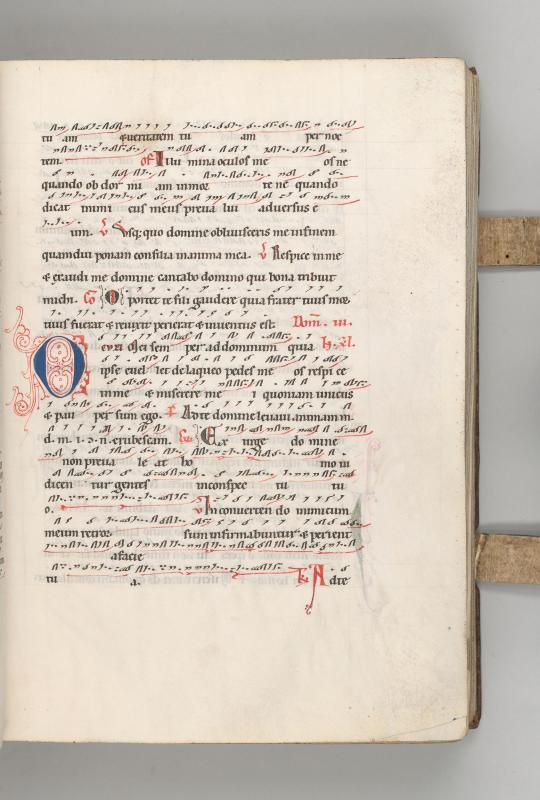 tu am & veritatem tu am per noc
tem. of Illu mina oculos me os ne
quando ob dor mi am in mor te ne quando
dicat inimi cus meus preva lui adversus e
um. V Usq; quo domine oblivisceris me in finem
quamdiu ponam consilia in anima mea. V Respice in me
& exaudi me domine cantabo domino qui bona tribuit
michi. Co Oportet te fili gaudere quia frater tuus mor
tuus fuerat & revixit perierat & inventus est. Dom. iii.
Oculi mei sem per ad dominum quia
ipse evel let de laqueo pedes me os respi ce
in me & miserere me i quoniam unicus
& pau per sum ego. Ad te domine levavi animam m
d. m. i. t. n. erubescam. Ex urge do mine
non preva le at ho mo iu
dicen tur gentes in conspec tu tu
o. V In converten do inimicum
meum retror sum infirmabuntur & perient
a facie
tu a. Tr Ad te